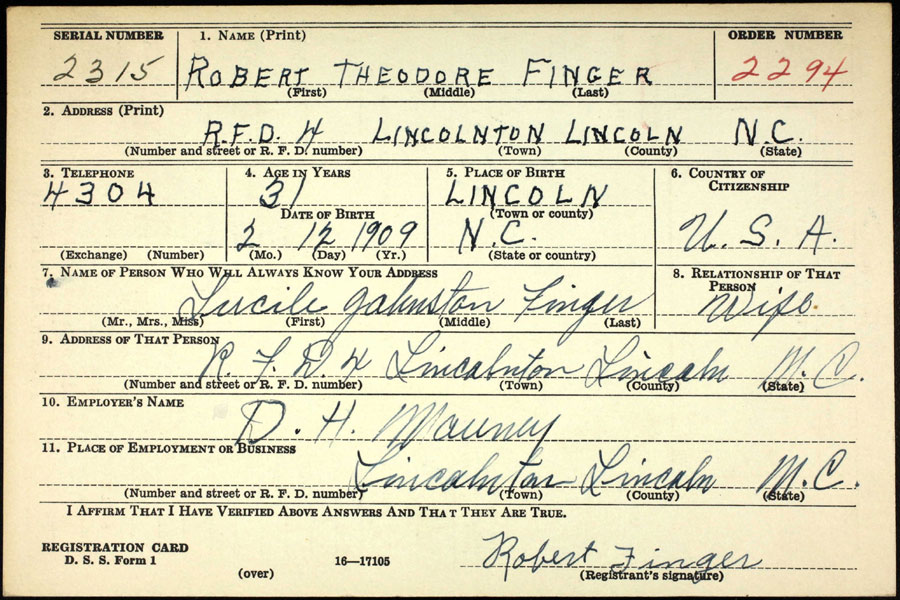 SERIAL NUMBER 1. NAME (Print) ORDER NUMBER
2315 ROBERT THEODORE FINGER 2294
(First) (Middle) (Last)
2. ADDRESS (Print)
R.F.D. 4 LINCOLNTON LINCOLN N.C.
(Number and street or R. F. D. number) (Town) (County) (State)
3. TELEPHONE 4. AGE IN YEARS 5. PLACE OF BIRTH 6. COUNTRY OF CITIZENSHIP
4304 31 LINCOLN
DATE OF BIRTH (Town or county)
2 12 1909 N.C. U. S. A.
(Exchange) (Number) (Mo.) (Day) (Yr.) (State or country)
7. NAME OF PERSON WHO WILL ALWAYS KNOW YOUR ADDRESS 8. RELATIONSHIP OF THAT PERSON
Lucile Johnston Finger Wife
(Mr., Mrs., Miss) (First) (Middle) (Last)
9. ADDRESS OF THAT PERSON
R. F. D. 4 Lincolnton Lincoln N. C.
(Number and street or R. F. D. number) (Town) (County) (State)
10. EMPLOYER'S NAME
D. H. Mauney
11. PLACE OF EMPLOYMENT OR BUSINESS
Lincolnton Lincoln N. C.
(Number and street or R. F. D. number) (Town) (County) (State)
I AFFIRM THAT I HAVE VERIFIED ABOVE ANSWERS AND THAT THEY ARE TRUE.
REGISTRATION CARD
D. S. S. Form 1 16—17105 Robert Finger
(over) (Registrant's signature)